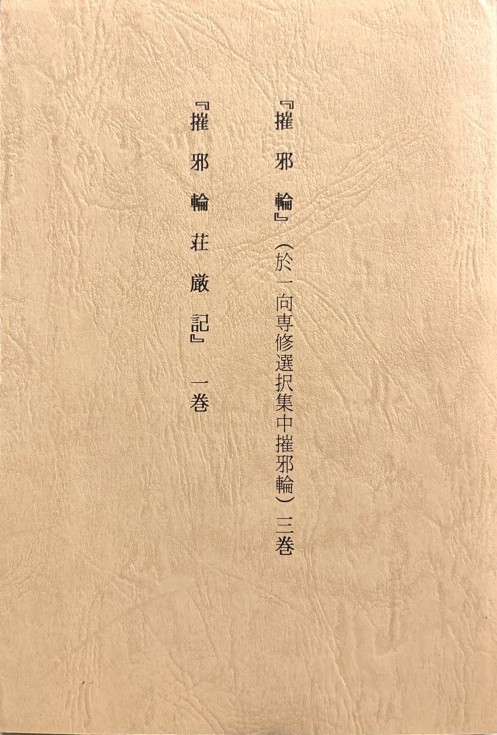 『摧邪輪』（於一向専修選択集中摧邪輪）三巻
『摧邪輪荘厳記』 一巻